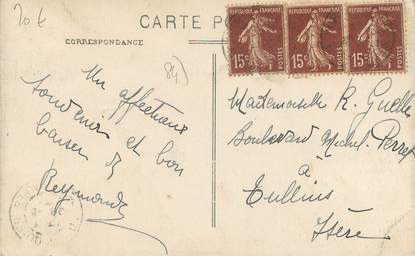 20 €
CARTE PO
CORRESPONDANCE
(84)
Un affectueux
souvenir et bon
baiser de
Reymonde
REPUBLIQUE FRANÇAISE
15c POSTES
REPUBLIQUE FRANÇAISE
15c POSTES
REPUBLIQUE FRANÇAISE
15c POSTES
Mademoiselle R. Guelle
Boulevard Michel Perret
à
Tullins
Isère